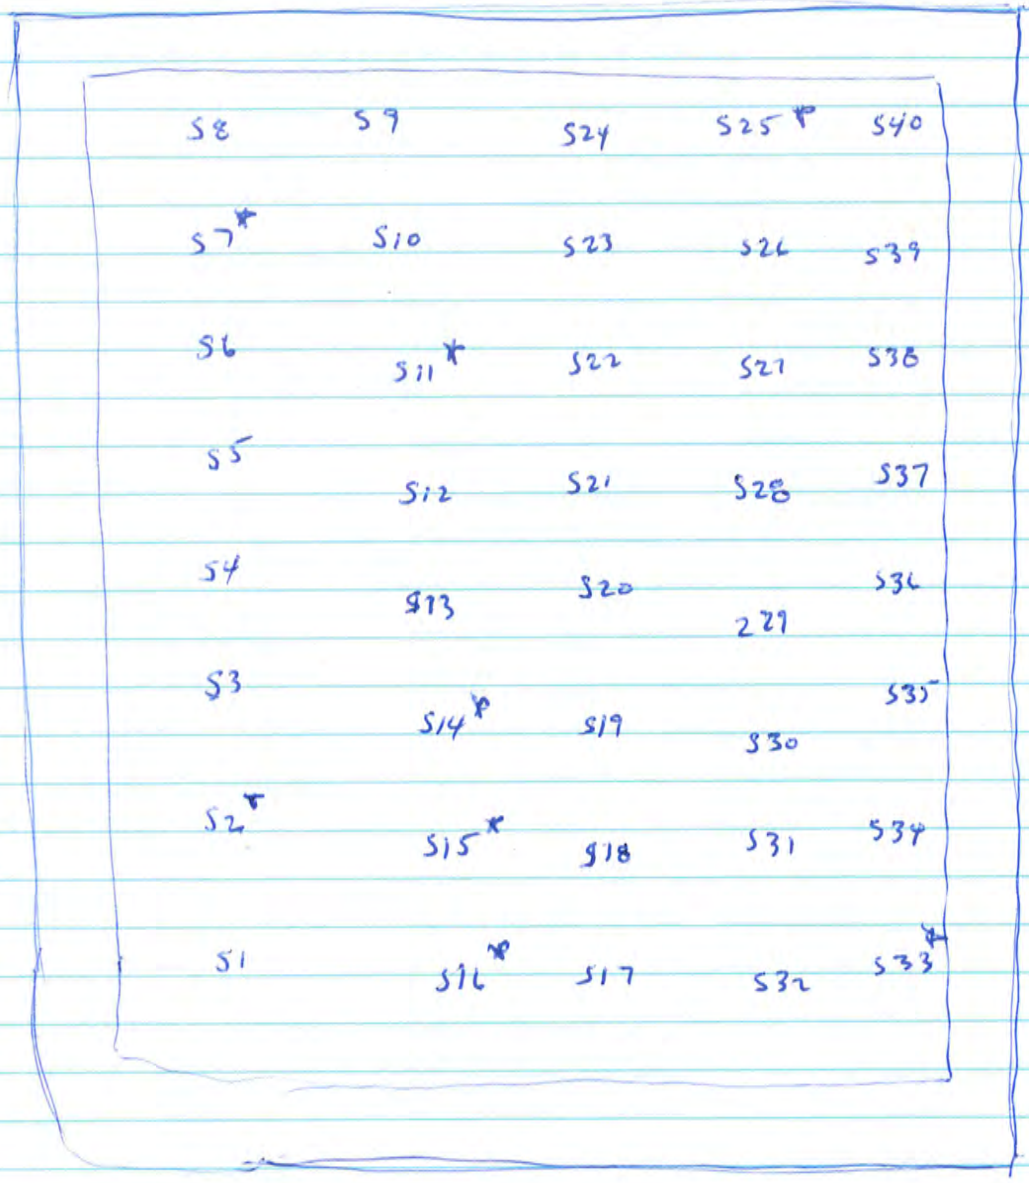 S8 S9 S24 S25* S40
S7* S10 S23 S26 S39
S6 S11* S22 S27 S38
S5 S12 S21 S28 S37
S4 S13 S20 229 S36
S3 S14* S19 S30 S35
S2* S15* S18 S31 S34
S1 S16* S17 S32 S33*